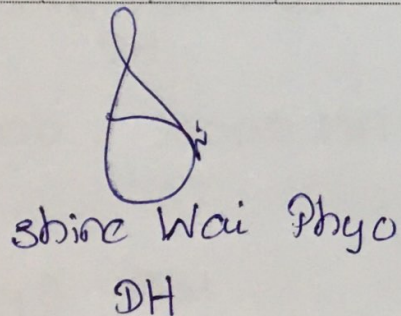 Shine Wai Phyo
DH